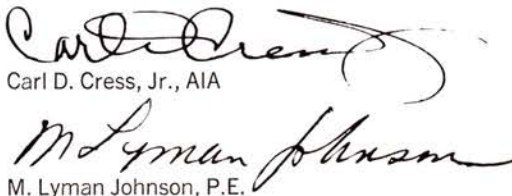 Carl D Cress Jr
Carl D. Cress, Jr., AIA
M Lyman Johnson
M. Lyman Johnson, P.E.